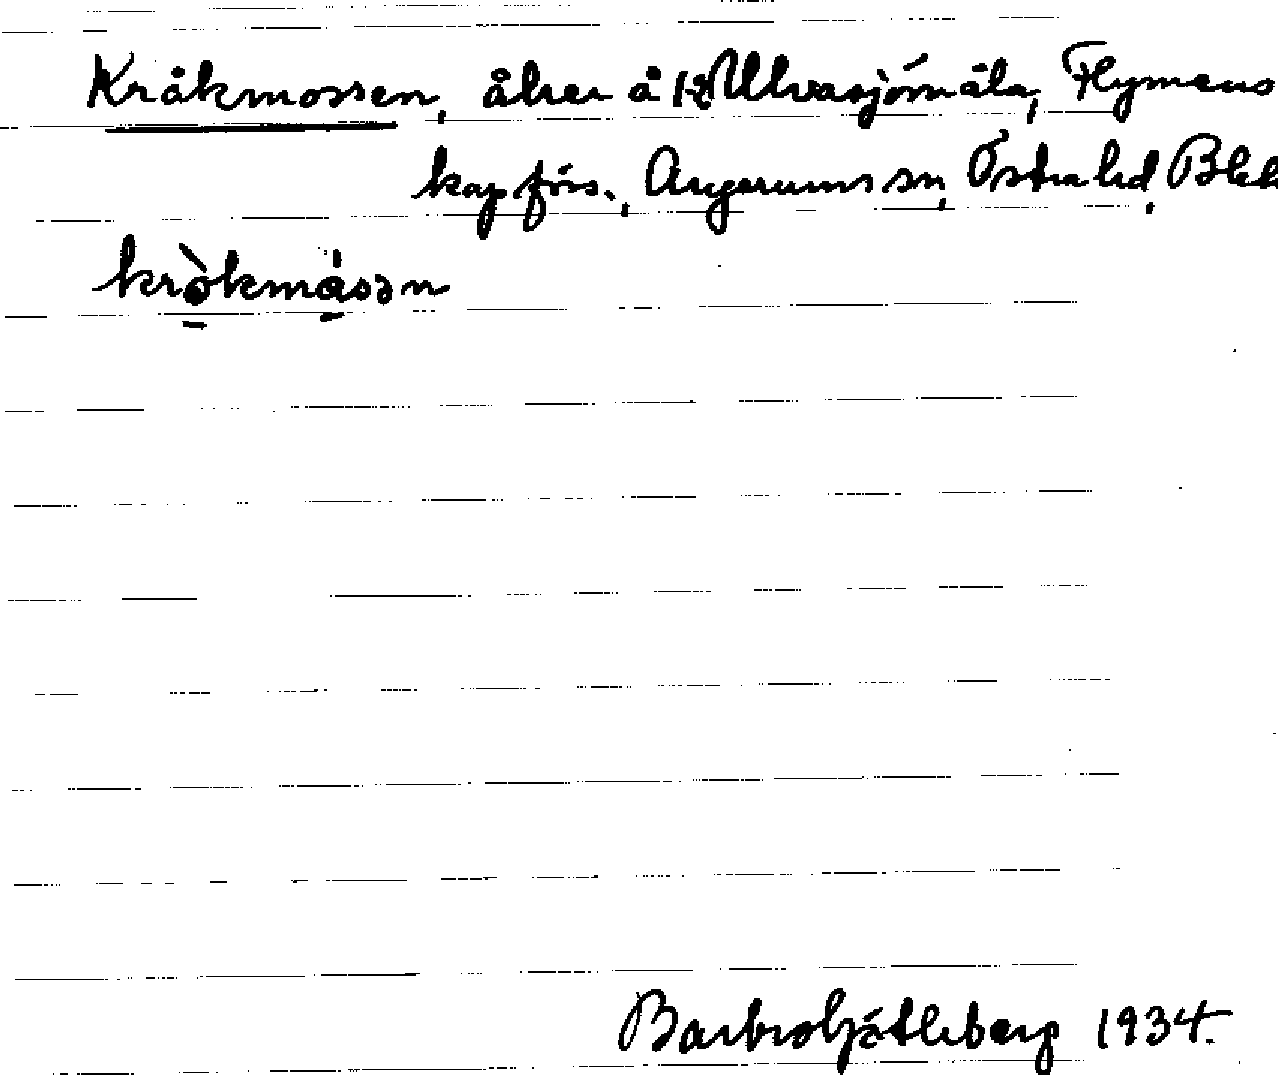 Kråkmossen, åker å 1-2 Ulvasjömåla, Flymens
kapförs., Augerums sn, Östra hd, Blek
kròkmåsən
Barbro 1934.